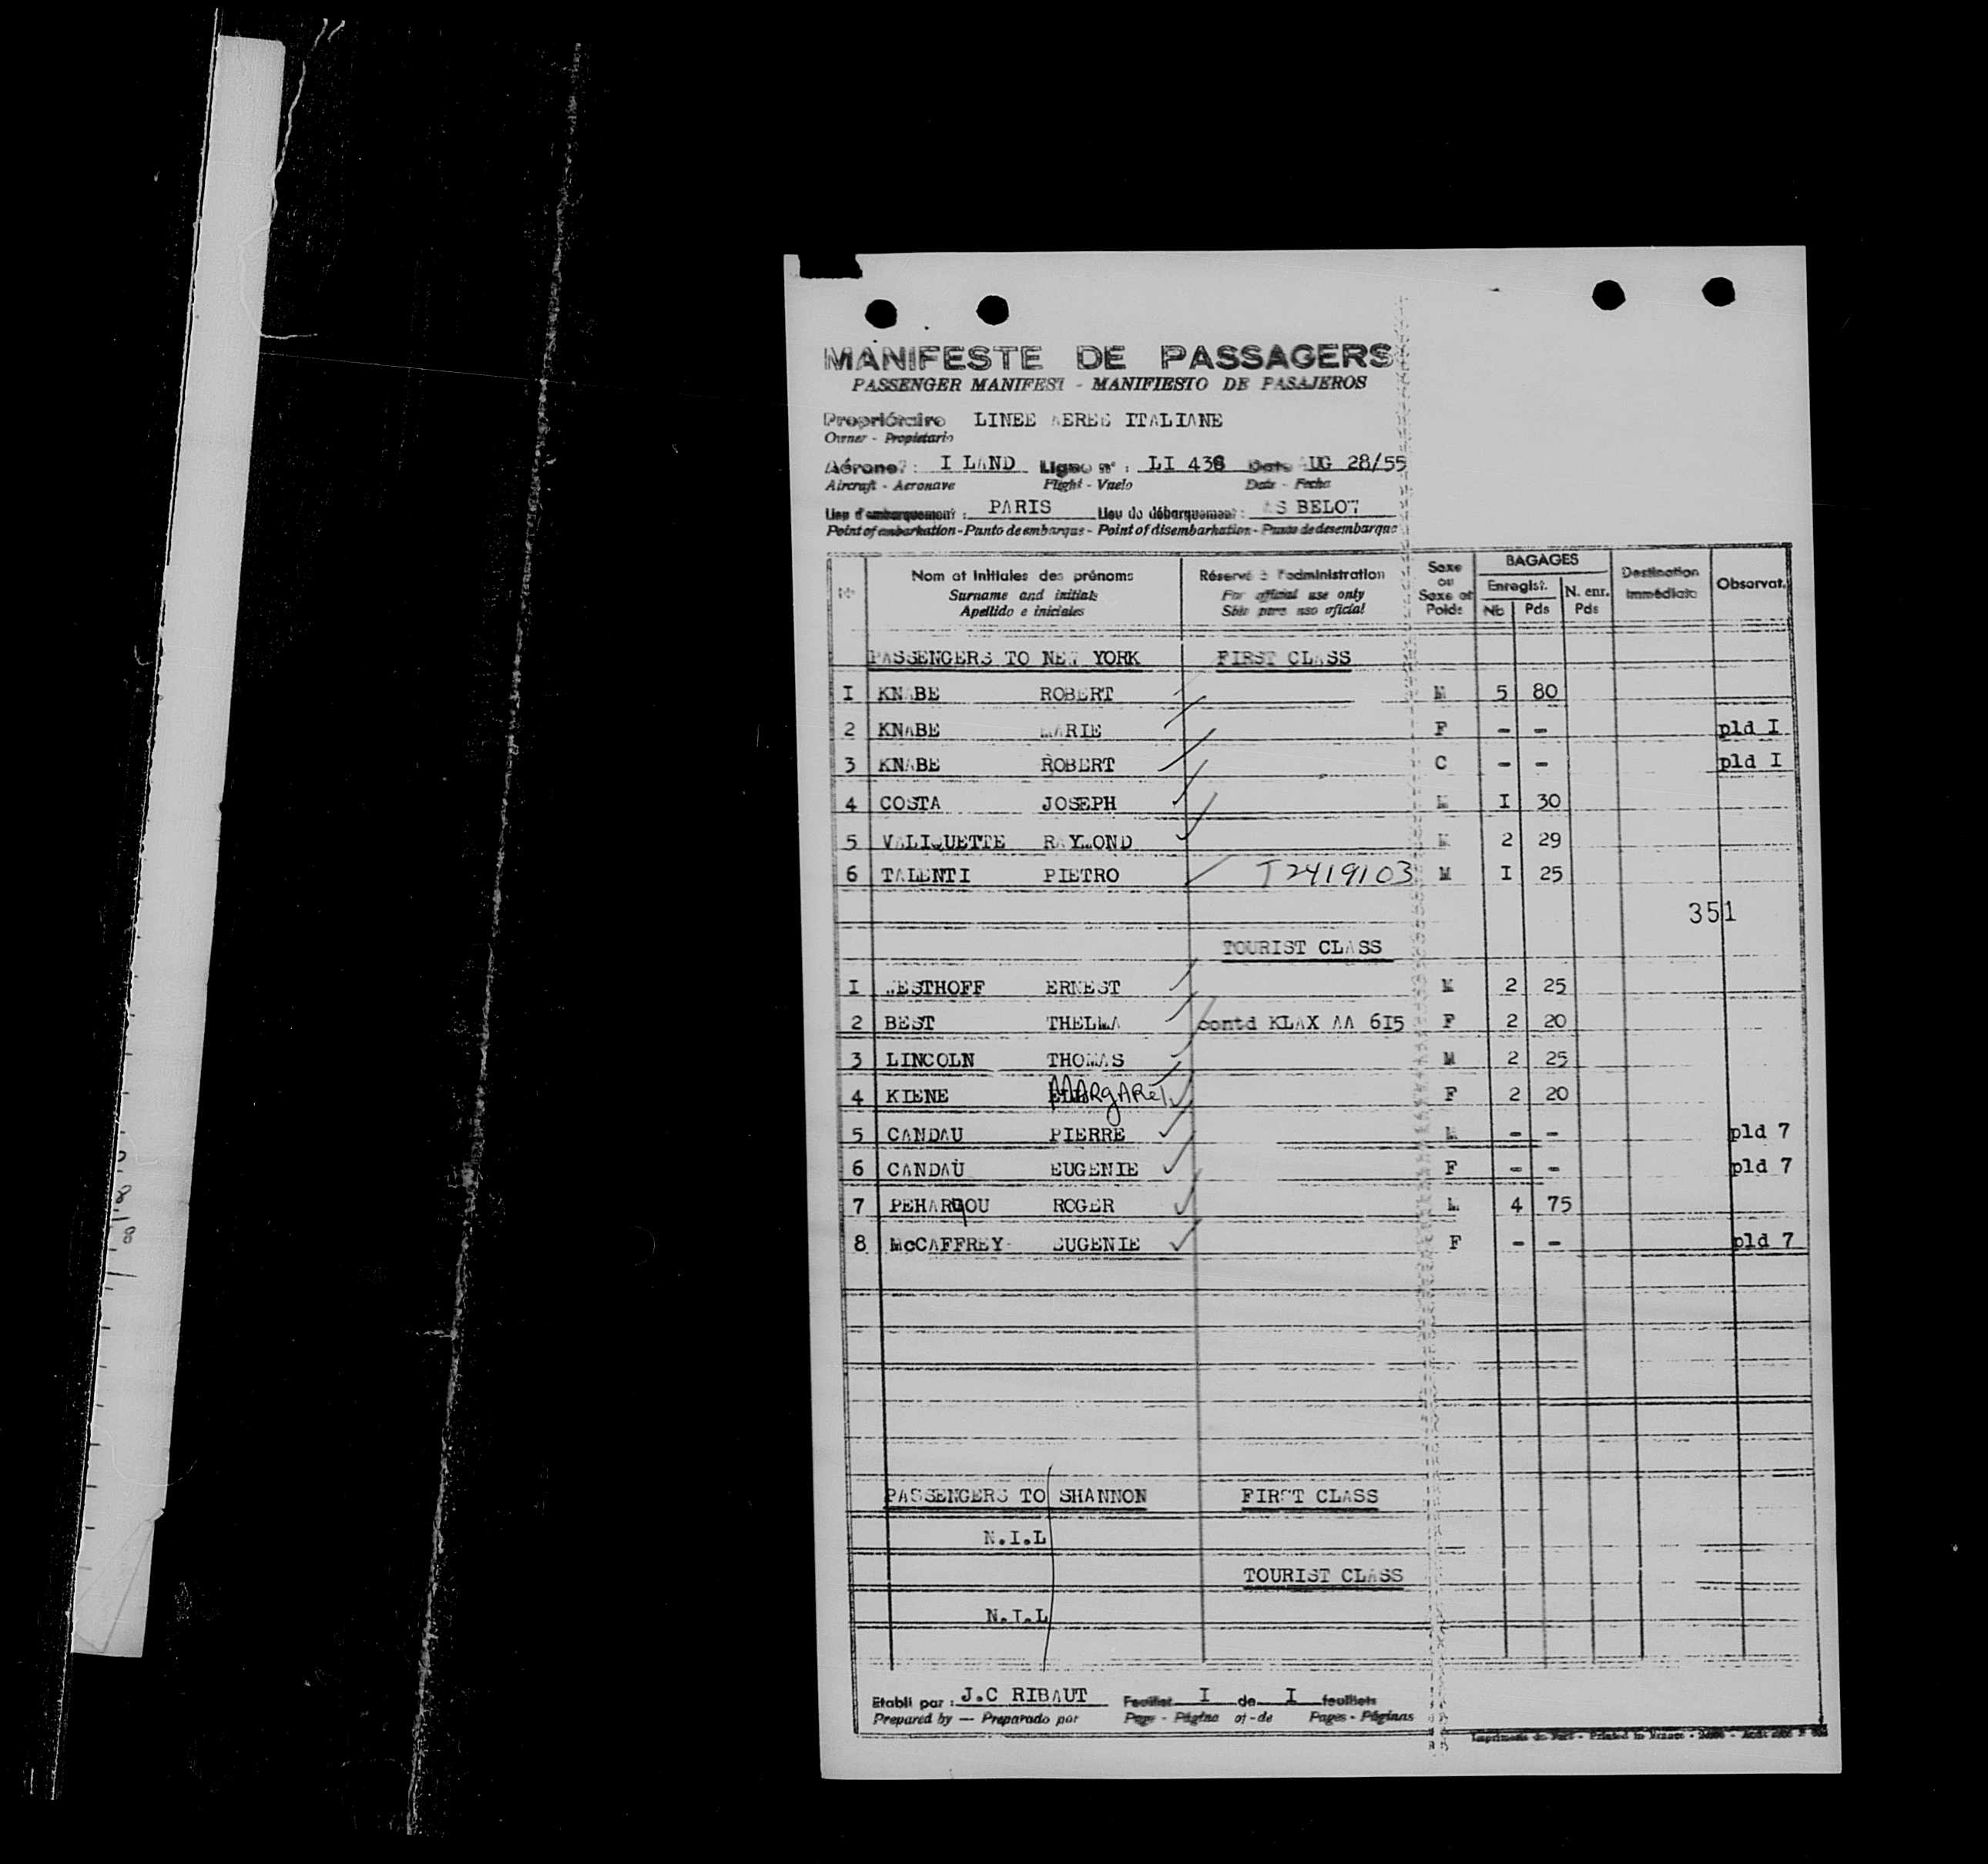 MANIFESTE DE PASSAGERS
PASSENGER MANIFEST - MANIFIESTO DE PASAJEROS
Propriétaire LINEE AEREE ITALIANE
Owner - Propietario
Aéronef : I LAND Ligne n° : LI 436 Date AUG 28/55
Aircraft - Aeronave Flight - Vuelo Date - Fecha
Lieu d'embarquement : PARIS Lieu de débarquement : AS BELOW
Point of embarkation - Punto de embarque - Point of disembarkation - Punto de desembarque
N° Nom et Initiales des prénoms Réservé à l'administration Sexe ou Sexe et Poids BAGAGES Destination immédiate Observat.
Surname and initials For official use only Enregist. N. enr.
Apellido e iniciales Sólo para uso oficial Nb Pds Pds
PASSENGERS TO NEW YORK FIRST CLASS
I KNABE ROBERT M 5 80
2 KNABE MARIE F - - pld I
3 KNABE ROBERT C - - pld I
4 COSTA JOSEPH M I 30
5 VALIQUETTE RAYMOND M 2 29
6 TALENTI PIETRO T2419103 M I 25
351
TOURIST CLASS
I WESTHOFF ERNEST M 2 25
2 BEST THELMA contd KLAX AA 6I5 F 2 20
3 LINCOLN THOMAS M 2 25
4 KIENE MARGARET F 2 20
5 CANDAU PIERRE M - - pld 7
6 CANDAU EUGENIE F - - pld 7
7 PEHARGOU ROGER M 4 75
8 McCAFFREY EUGENIE F - - pld 7
PASSENGERS TO SHANNON FIRST CLASS
N.I.L
TOURIST CLASS
N.I.L
Etabli par : J.C RIBAUT Feuillet I de I feuillets
Prepared by — Preparado por Page - Página of - de Pages - Páginas